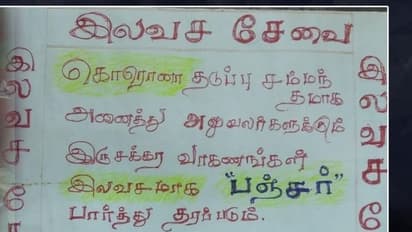 இலவச சேவை
கொரோனா தடுப்பு சம்மந்
தமாக
அனைத்து அலுவலர்களுக்கும்
இருசக்கர வாகணங்கள்
இலவசமாக "பஞ்சர்"
பார்த்து தரப்படும்.
இலவச சே
இலவச சே